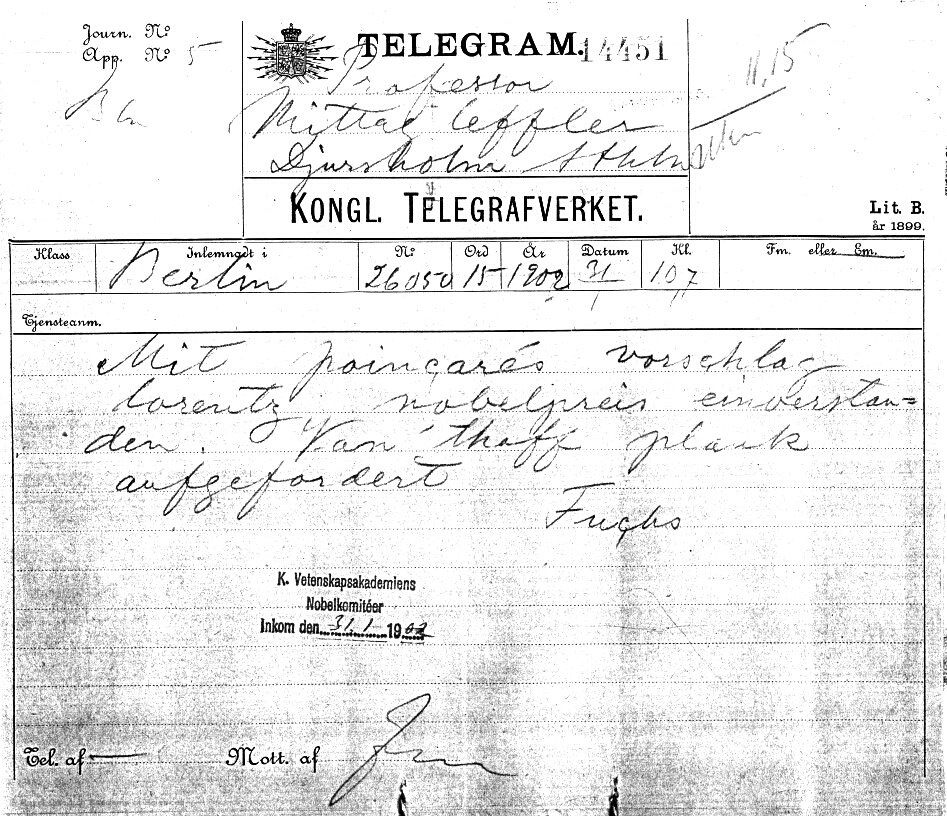 Journ. No
App. No 5
TELEGRAM.
14451
11,15
Professor
Mittag Leffler
Djursholm
KONGL. TELEGRAFVERKET.
Lit. B.
år 1899.
Klass Inlemnadt i No Ord År Datum Kl. Fm. eller Em.
Berlin 26050 15 1902 31/1 10,7
Tjensteanm.
Mit poincarés vorschlag
lorentz nobelpreis einverstan=
den. Van'thoff plank
aufgefordert
Fuchs
K. Vetenskapsakademiens
Nobelkomitéer
Inkom den 31.1 1902
Tel. af Mott. af